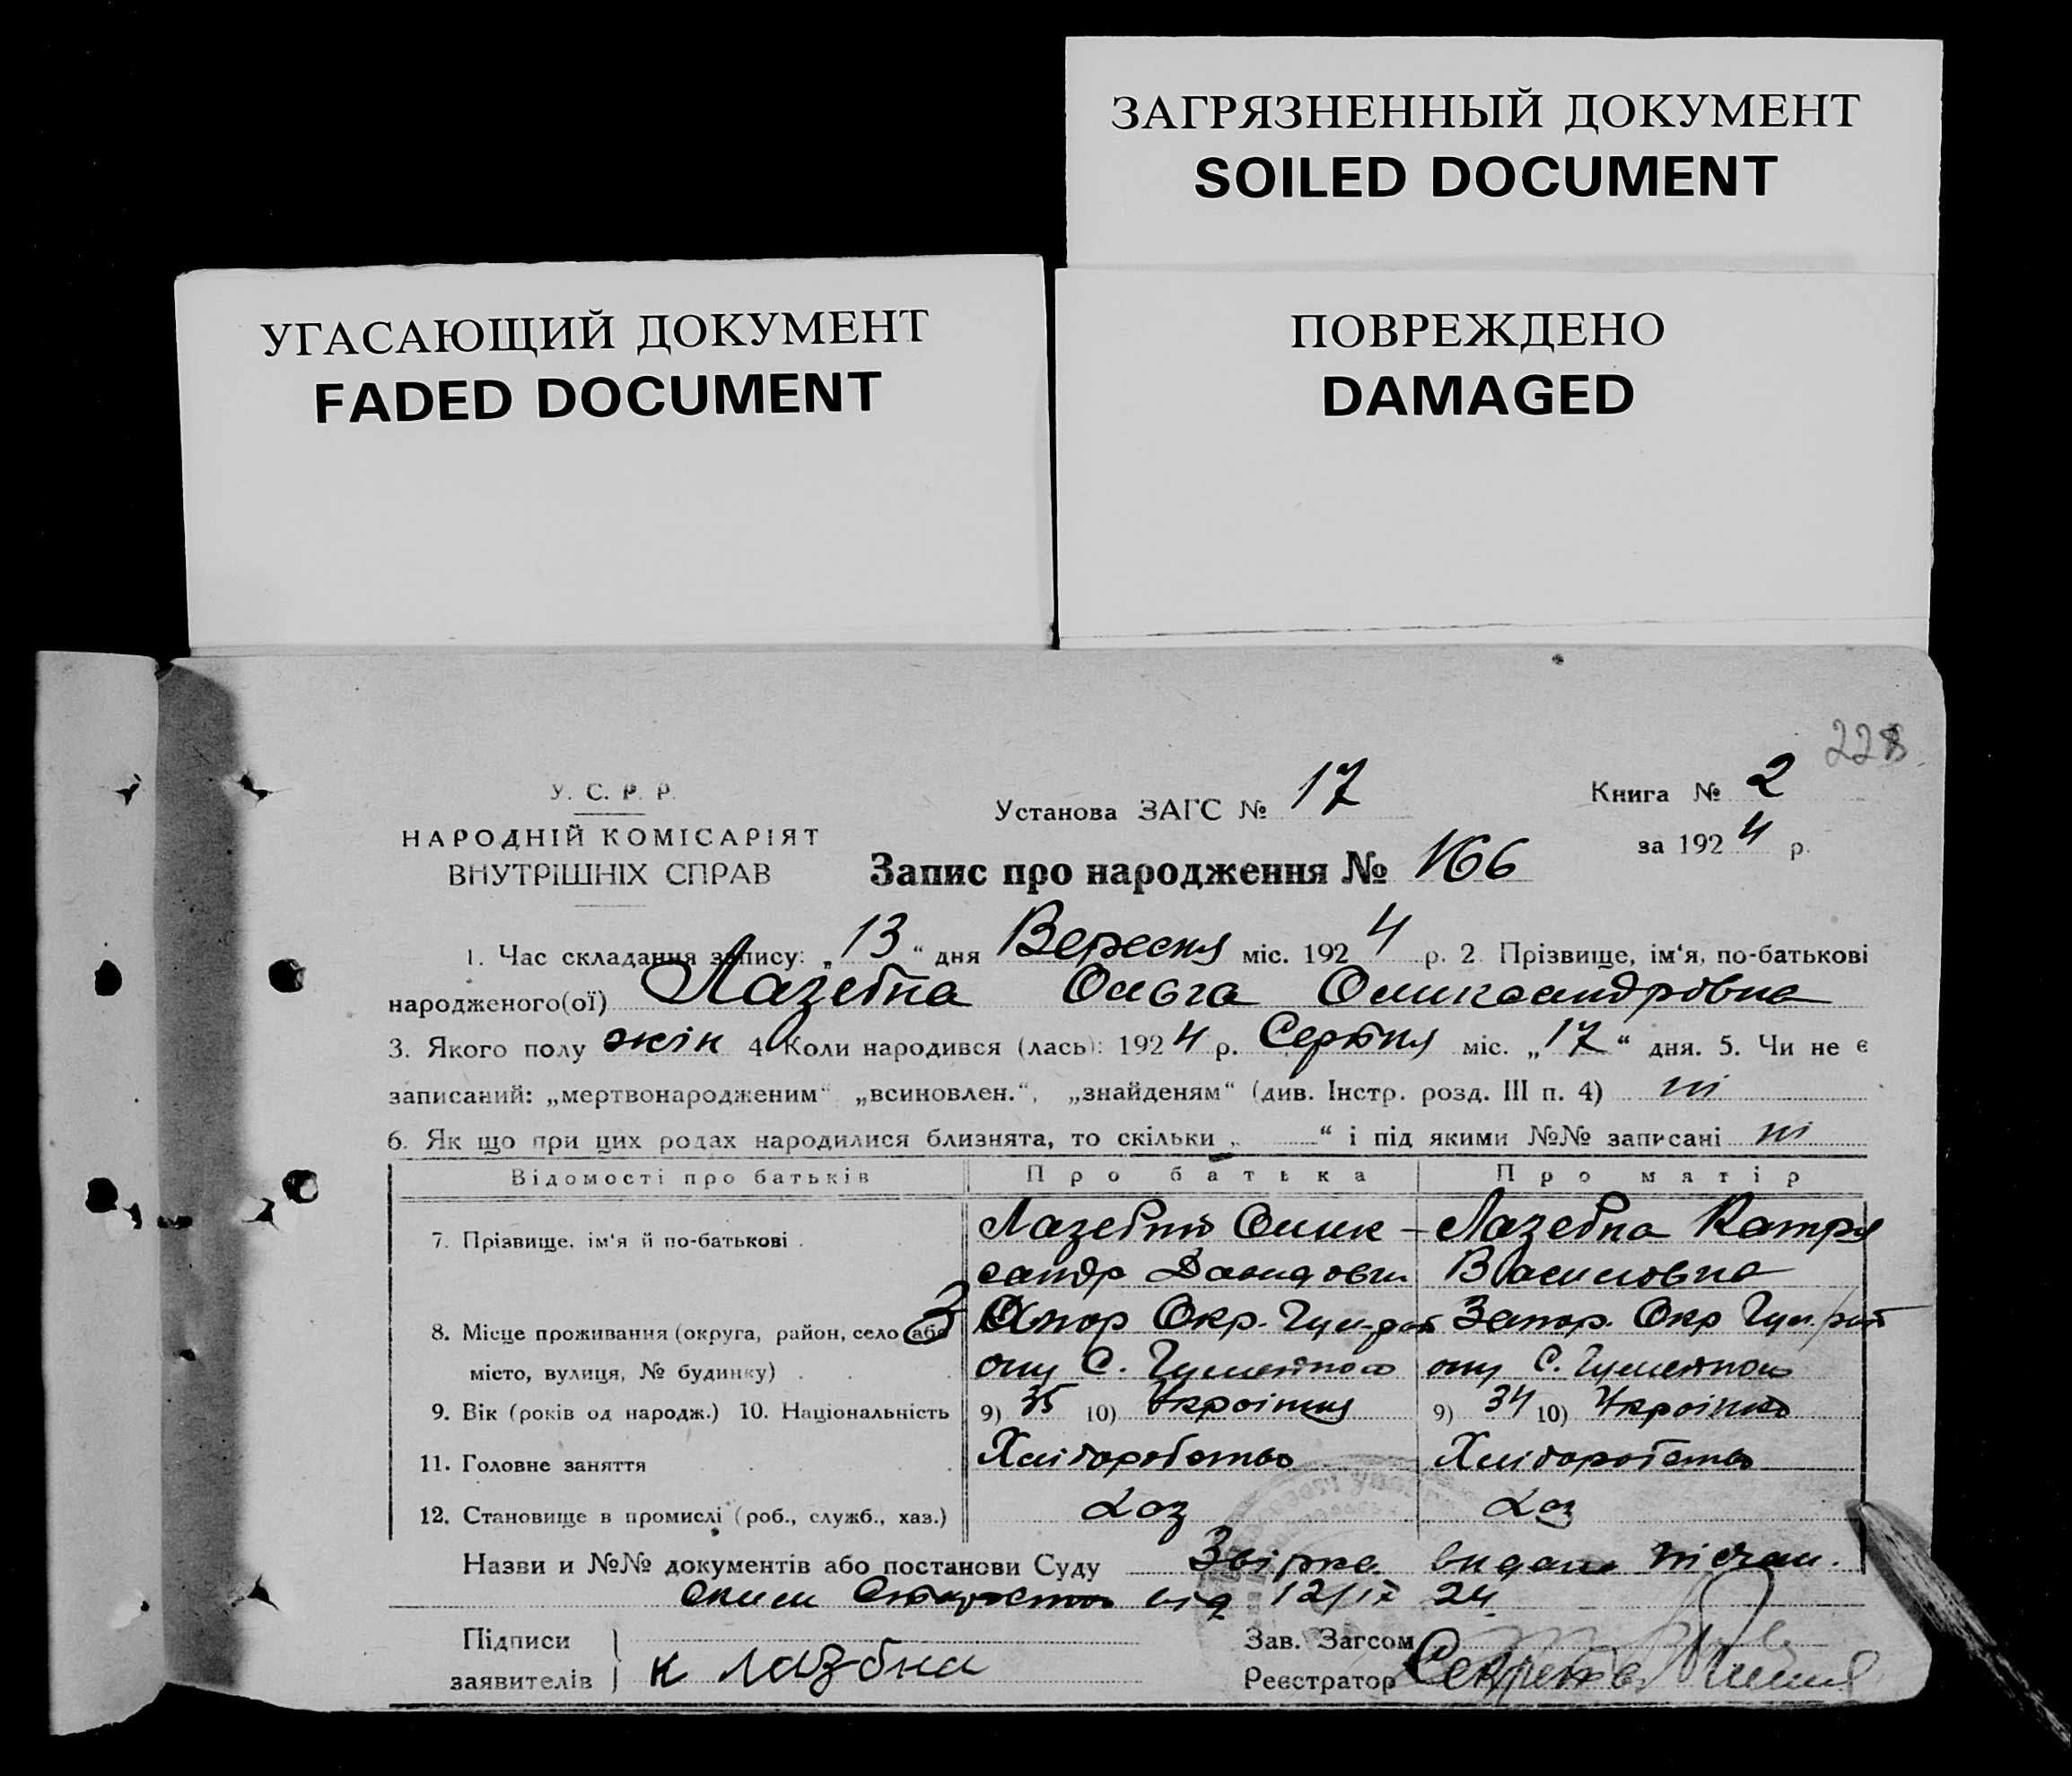 ЗАГРЯЗНЕННЫЙ ДОКУМЕНТ
SOILED DOCUMENT
УГАСАЮЩИЙ ДОКУМЕНТ
FADED DOCUMENT
ПОВРЕЖДЕНО
DAMAGED
228
У. С. Р. Р.
НАРОДНІЙ КОМІСАРІЯТ
ВНУТРІШНІХ СПРАВ
Установа ЗАГС № 17
Книга № 2
за 1924 р.
Запис про народження № 166
1. Час складання запису: „13“ дня Вересня міс. 1924 р. 2. Прізвище, ім‘я, по-батькові
народженого(ої) Лазебна Ольга Олександровна
3. Якого полу жін 4. Коли народився (лась): 1924 р. Серпня міс. „17“ дня. 5. Чи не є
записаний: „мертвонародженим“ „всиновлен.“, „знайденям“ (див. Інстр. розд. III п. 4) ні
6. Як що при цих родах народилися близнята, то скільки „ “ і під якими №№ записані ні
Відомості про батьків Про батька Про матір
7. Прізвище, ім‘я й по-батькові Лазебний Олик- Лазебна Катря
сандр Давидович Василовна
8. Місце проживання (округа, район, село або Запор Окр. Запор. Окр
місто, вулиця, № будинку) С. С.
9. Вік (років од народж.) 10. Національність 9) 35 10) Україниця 9) 34 10) Українка
11. Головне заняття Хліборобство Хліборобство
12. Становище в промислі (роб., служб., хаз.) Хаз Хаз
Назви и №№ документів або постанови Суду видана
від 24
Підписи
заявителів } к лазбна
Зав. Загсом
Реєстратор